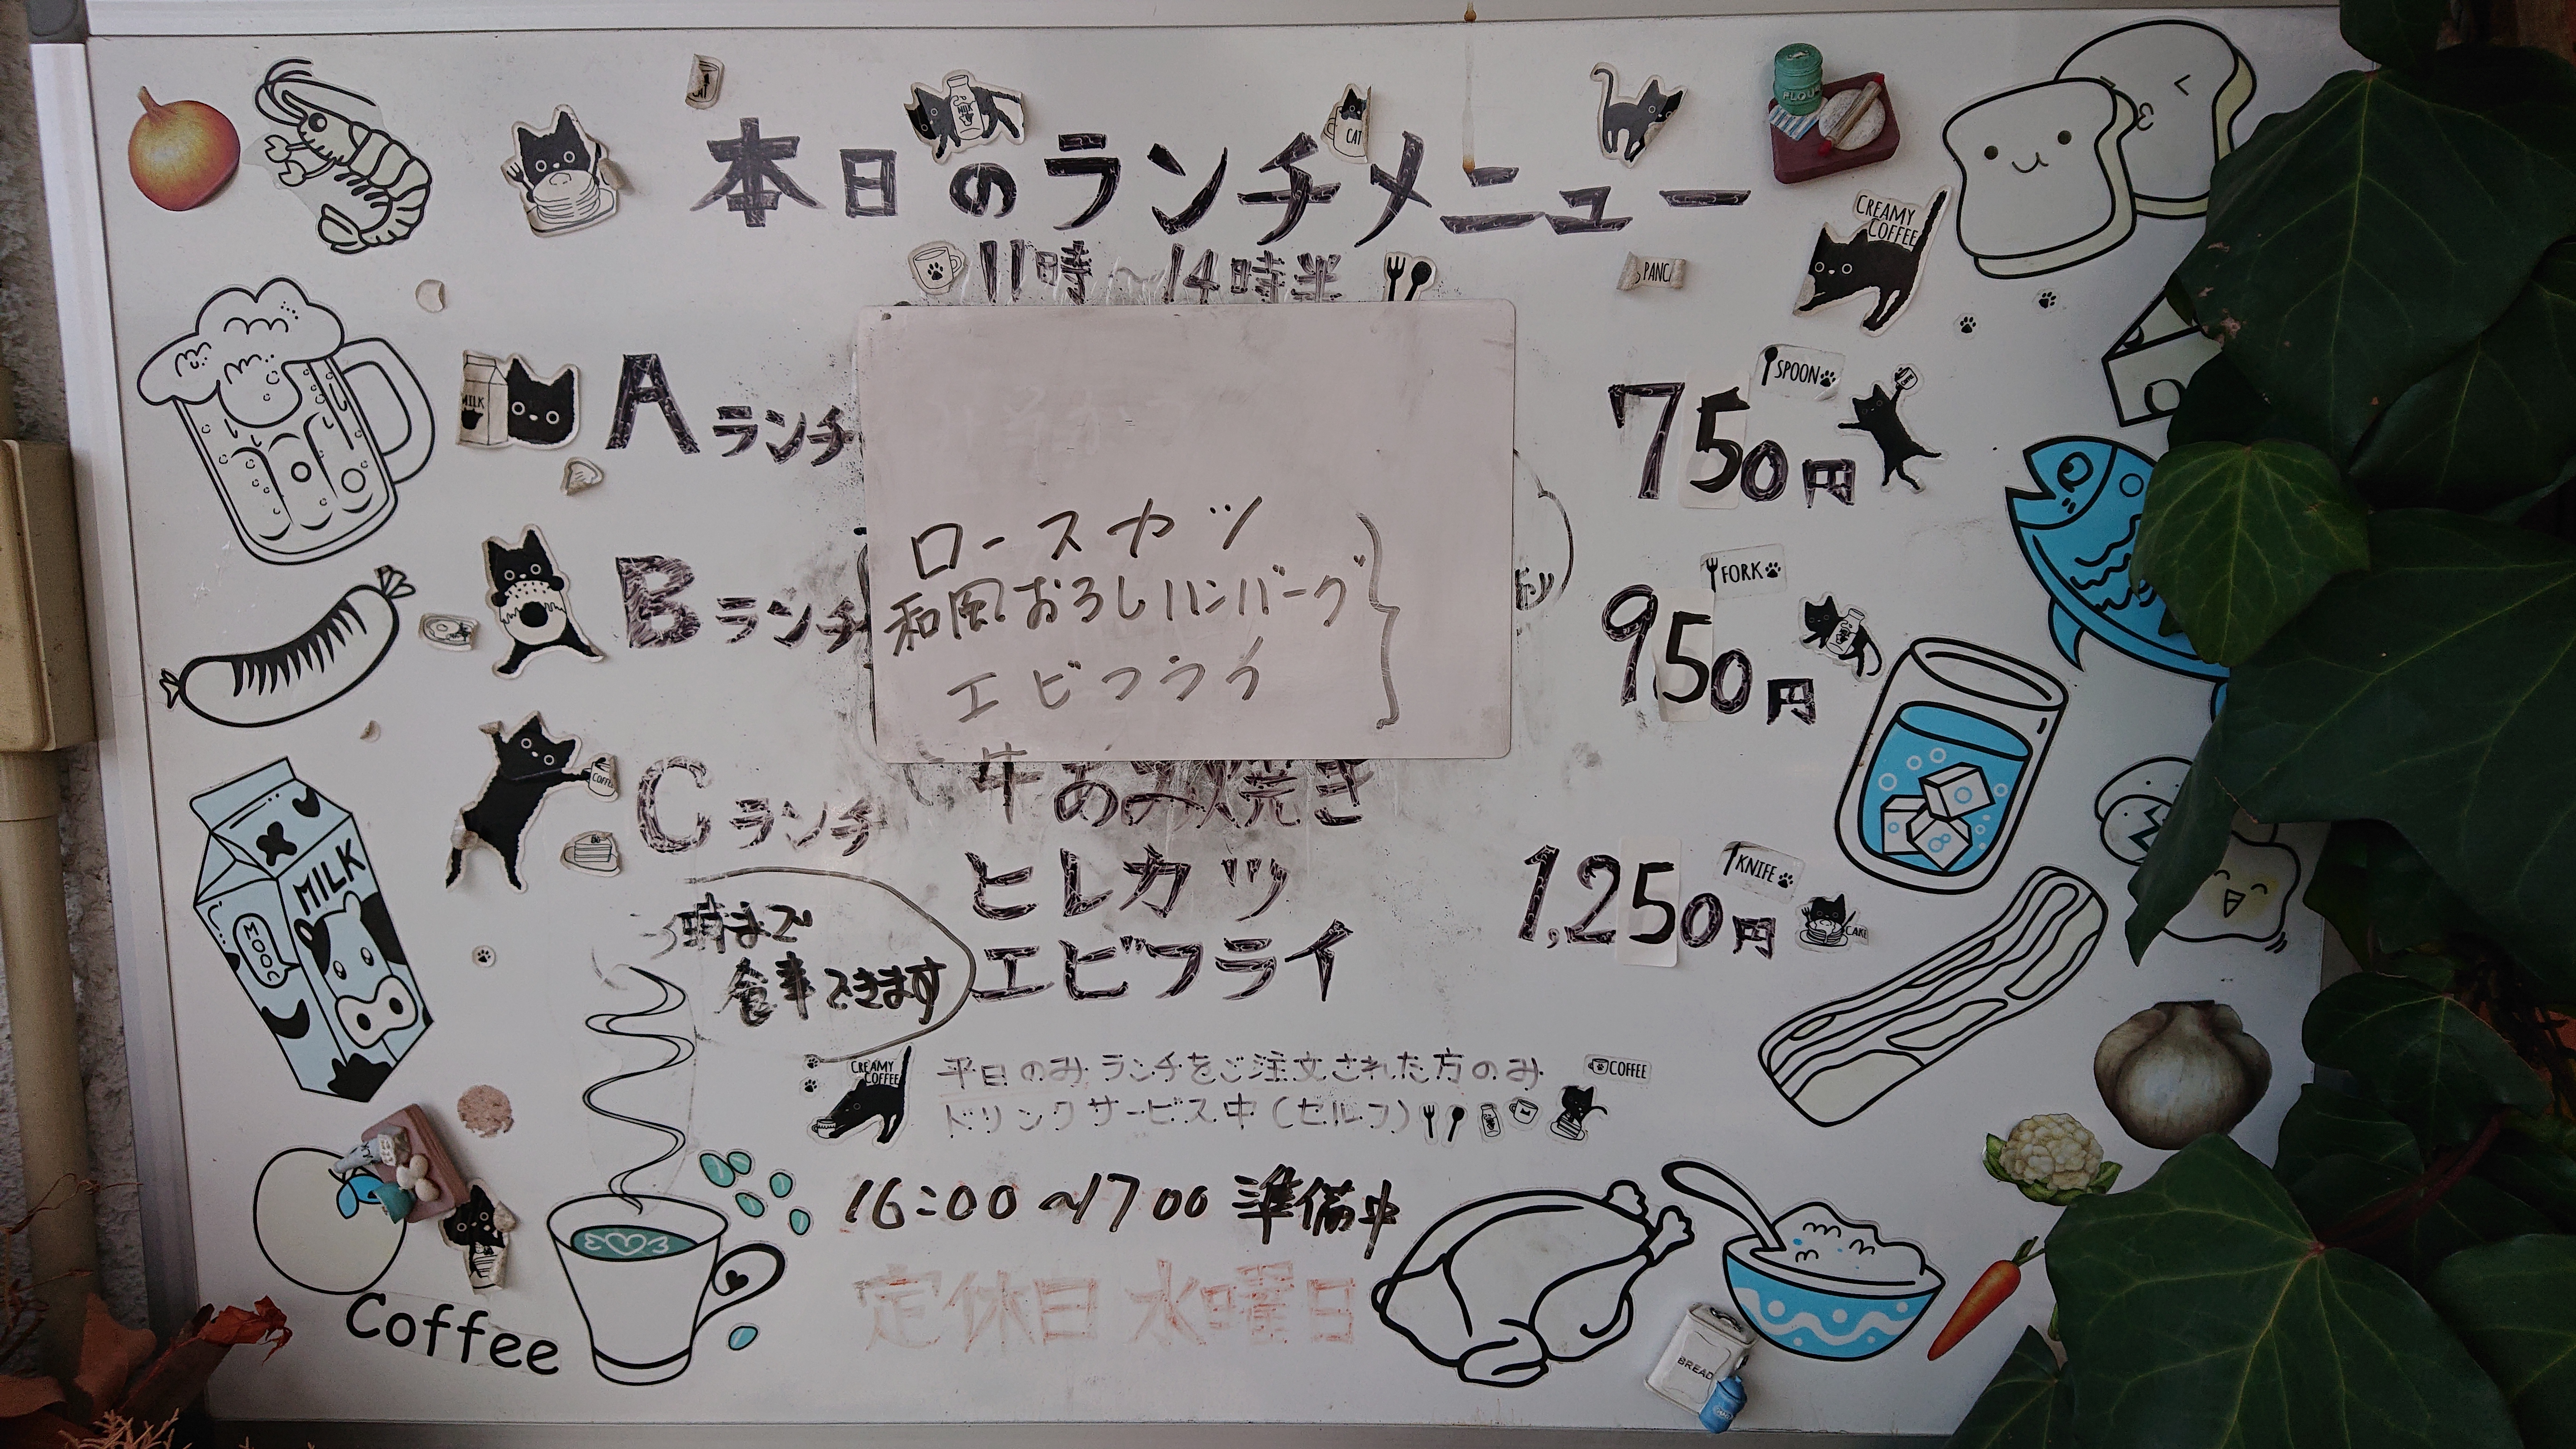 本日のランチメニュー
11時～14時半
CAT
MILK
CREAMY
COFFEE
FLOUR
Aランチ
750円
SPOON
MILK
ロースカツ
Bランチ
和風おろしハンバーグ
950円
FORK
エビフライ
Cランチ
牛あみ焼き
ヒレカツ
1,250円
KNIFE
CAKE
エビフライ
時まで
食事できます
MILK
MOOO
CREAMY
COFFEE
平日のみランチをご注文された方のみ
COFFEE
ドリンクサービス中(セルフ)
16:00～1700 準備中
定休日 水曜日
Coffee
BREAD